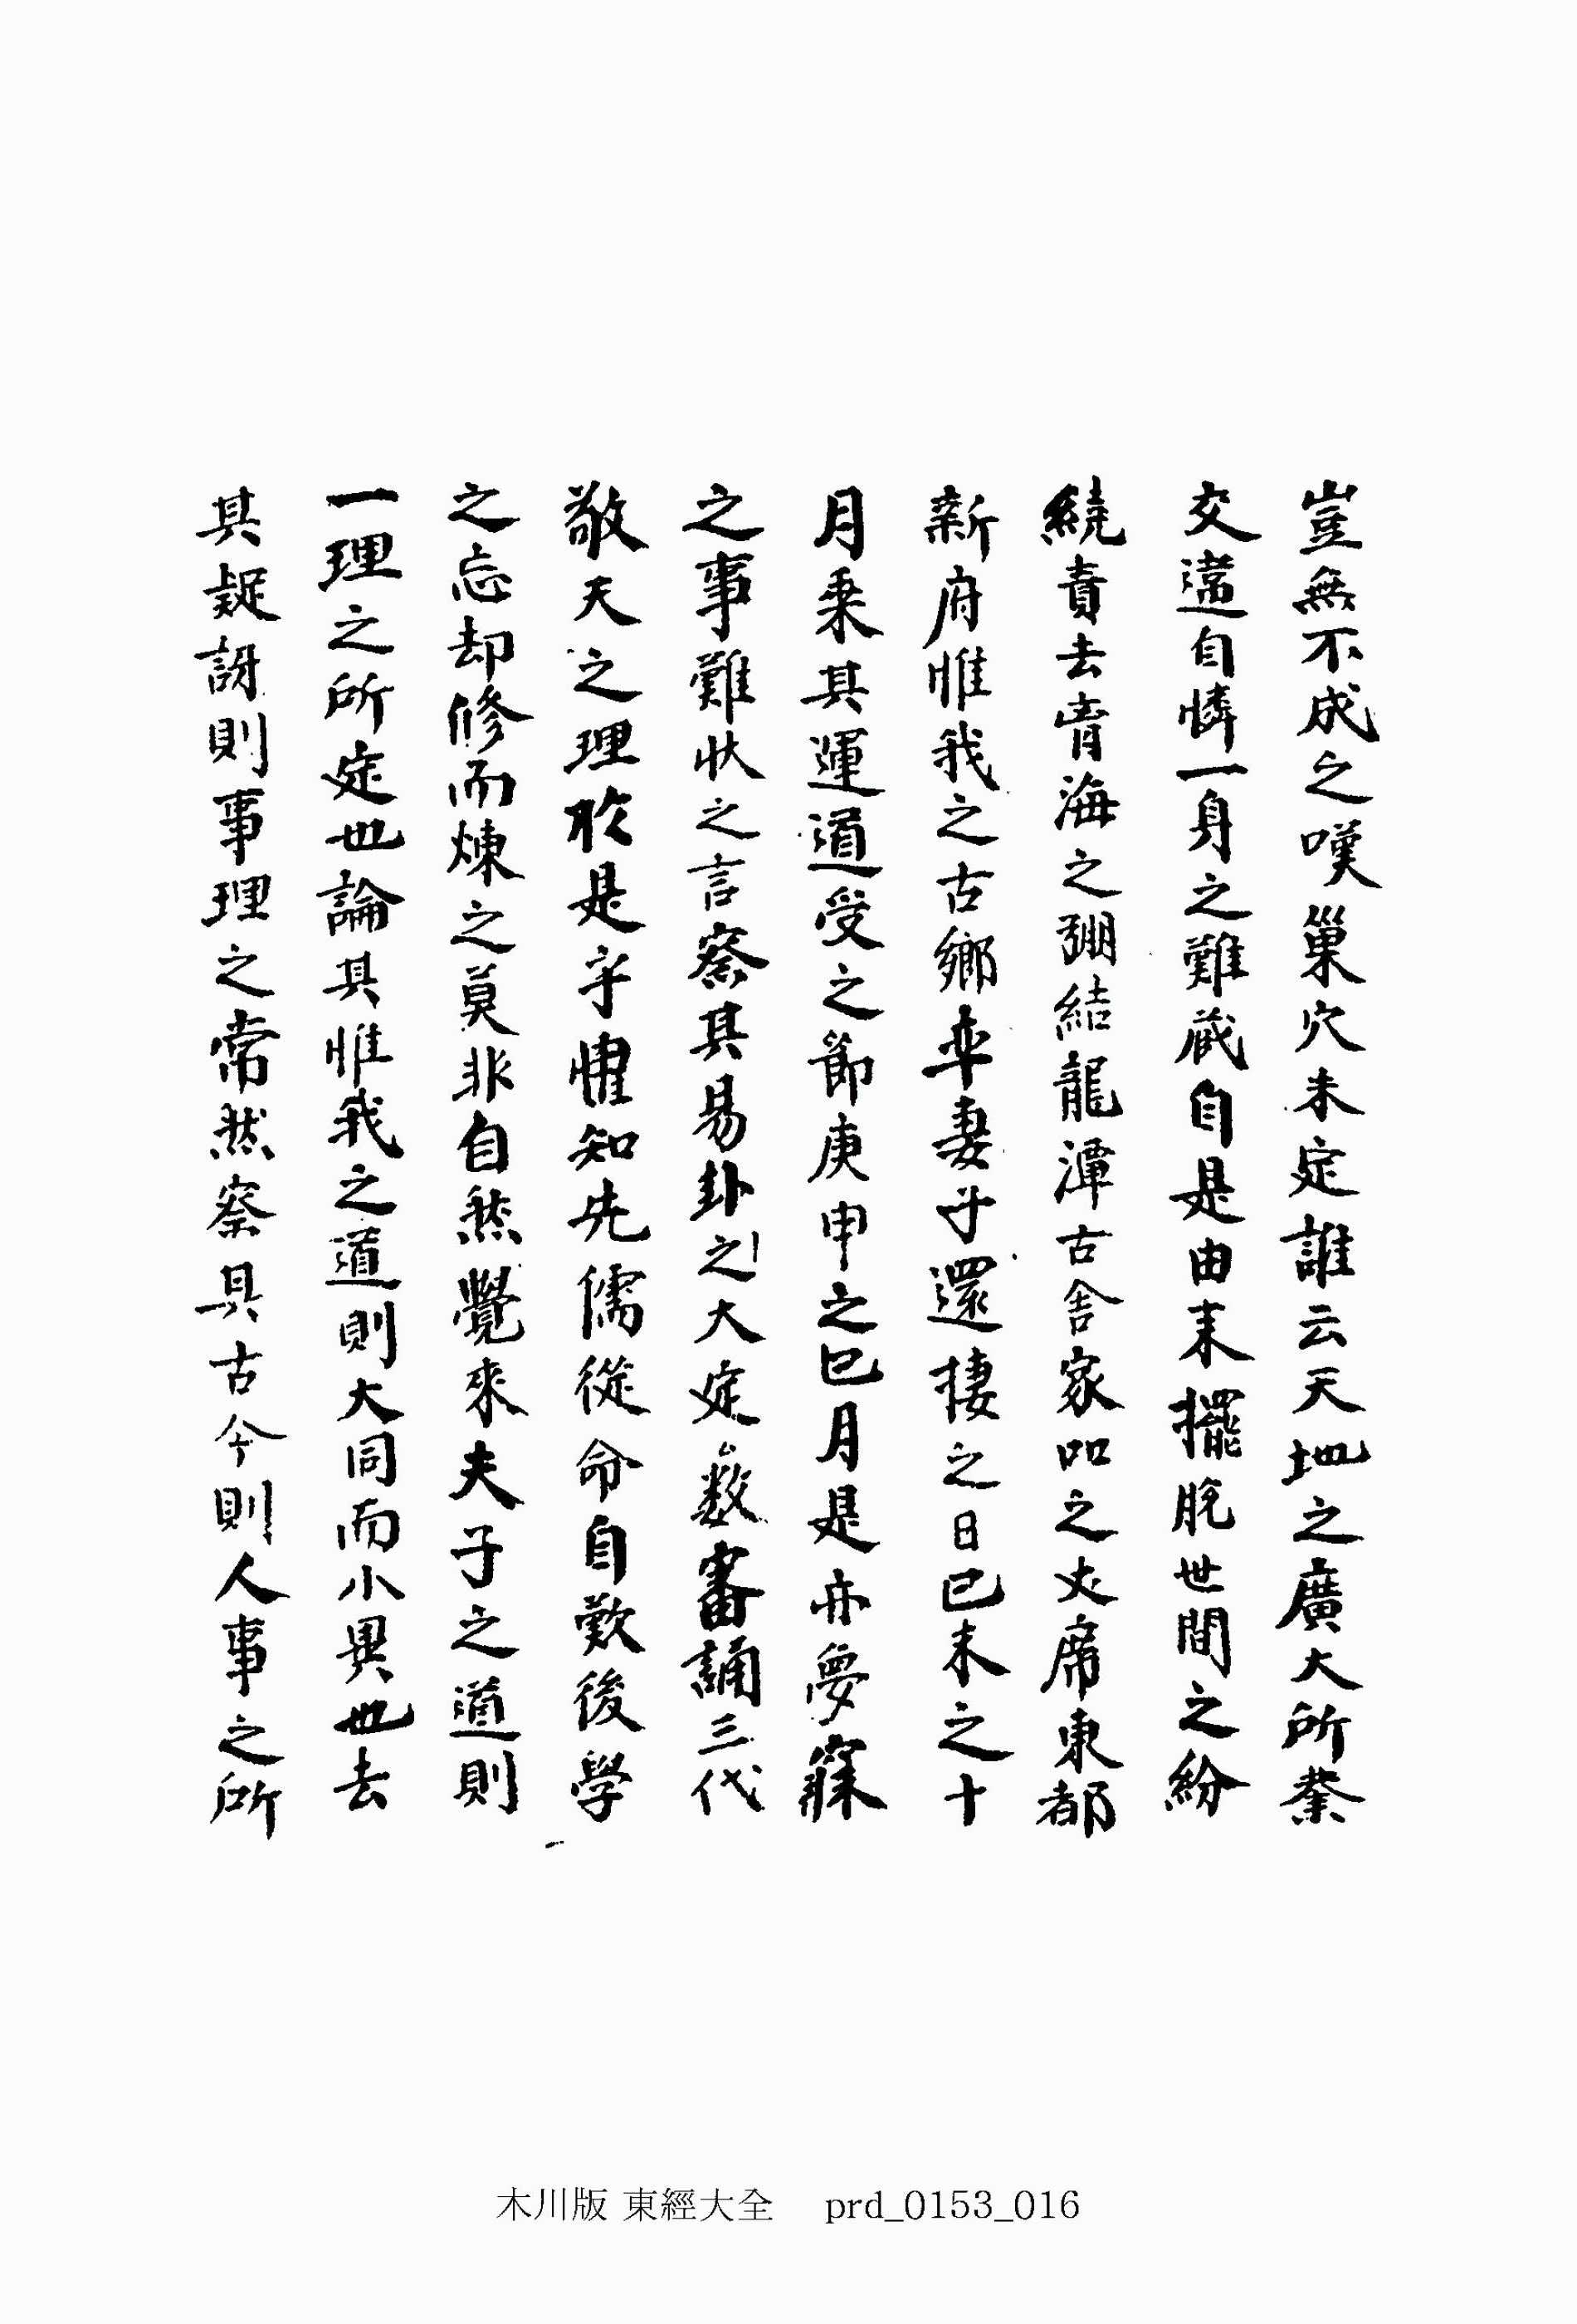 豈無不成之嘆巢穴未定誰云天地之廣大所業
交違自憐一身之難藏自是由來擺脫世間之紛
繞責去胷海之弸結龍潭古舍家叫之丈席東都
新府惟我之古鄕率妻子還捿之日己未之十
月乘其運道受之節庚申之巳月是亦夢寐
之事難狀之言察其易卦之大定數審誦三代
敬天之理於是乎惟知先儒從命自歎後學
之忘却修而煉之莫非自然覺來夫子之道則
一理之所定也論其惟我之道則大同而小異也去
其疑訝則事理之常然察其古今則人事之所
木川版 東經大全 prd_0153_016